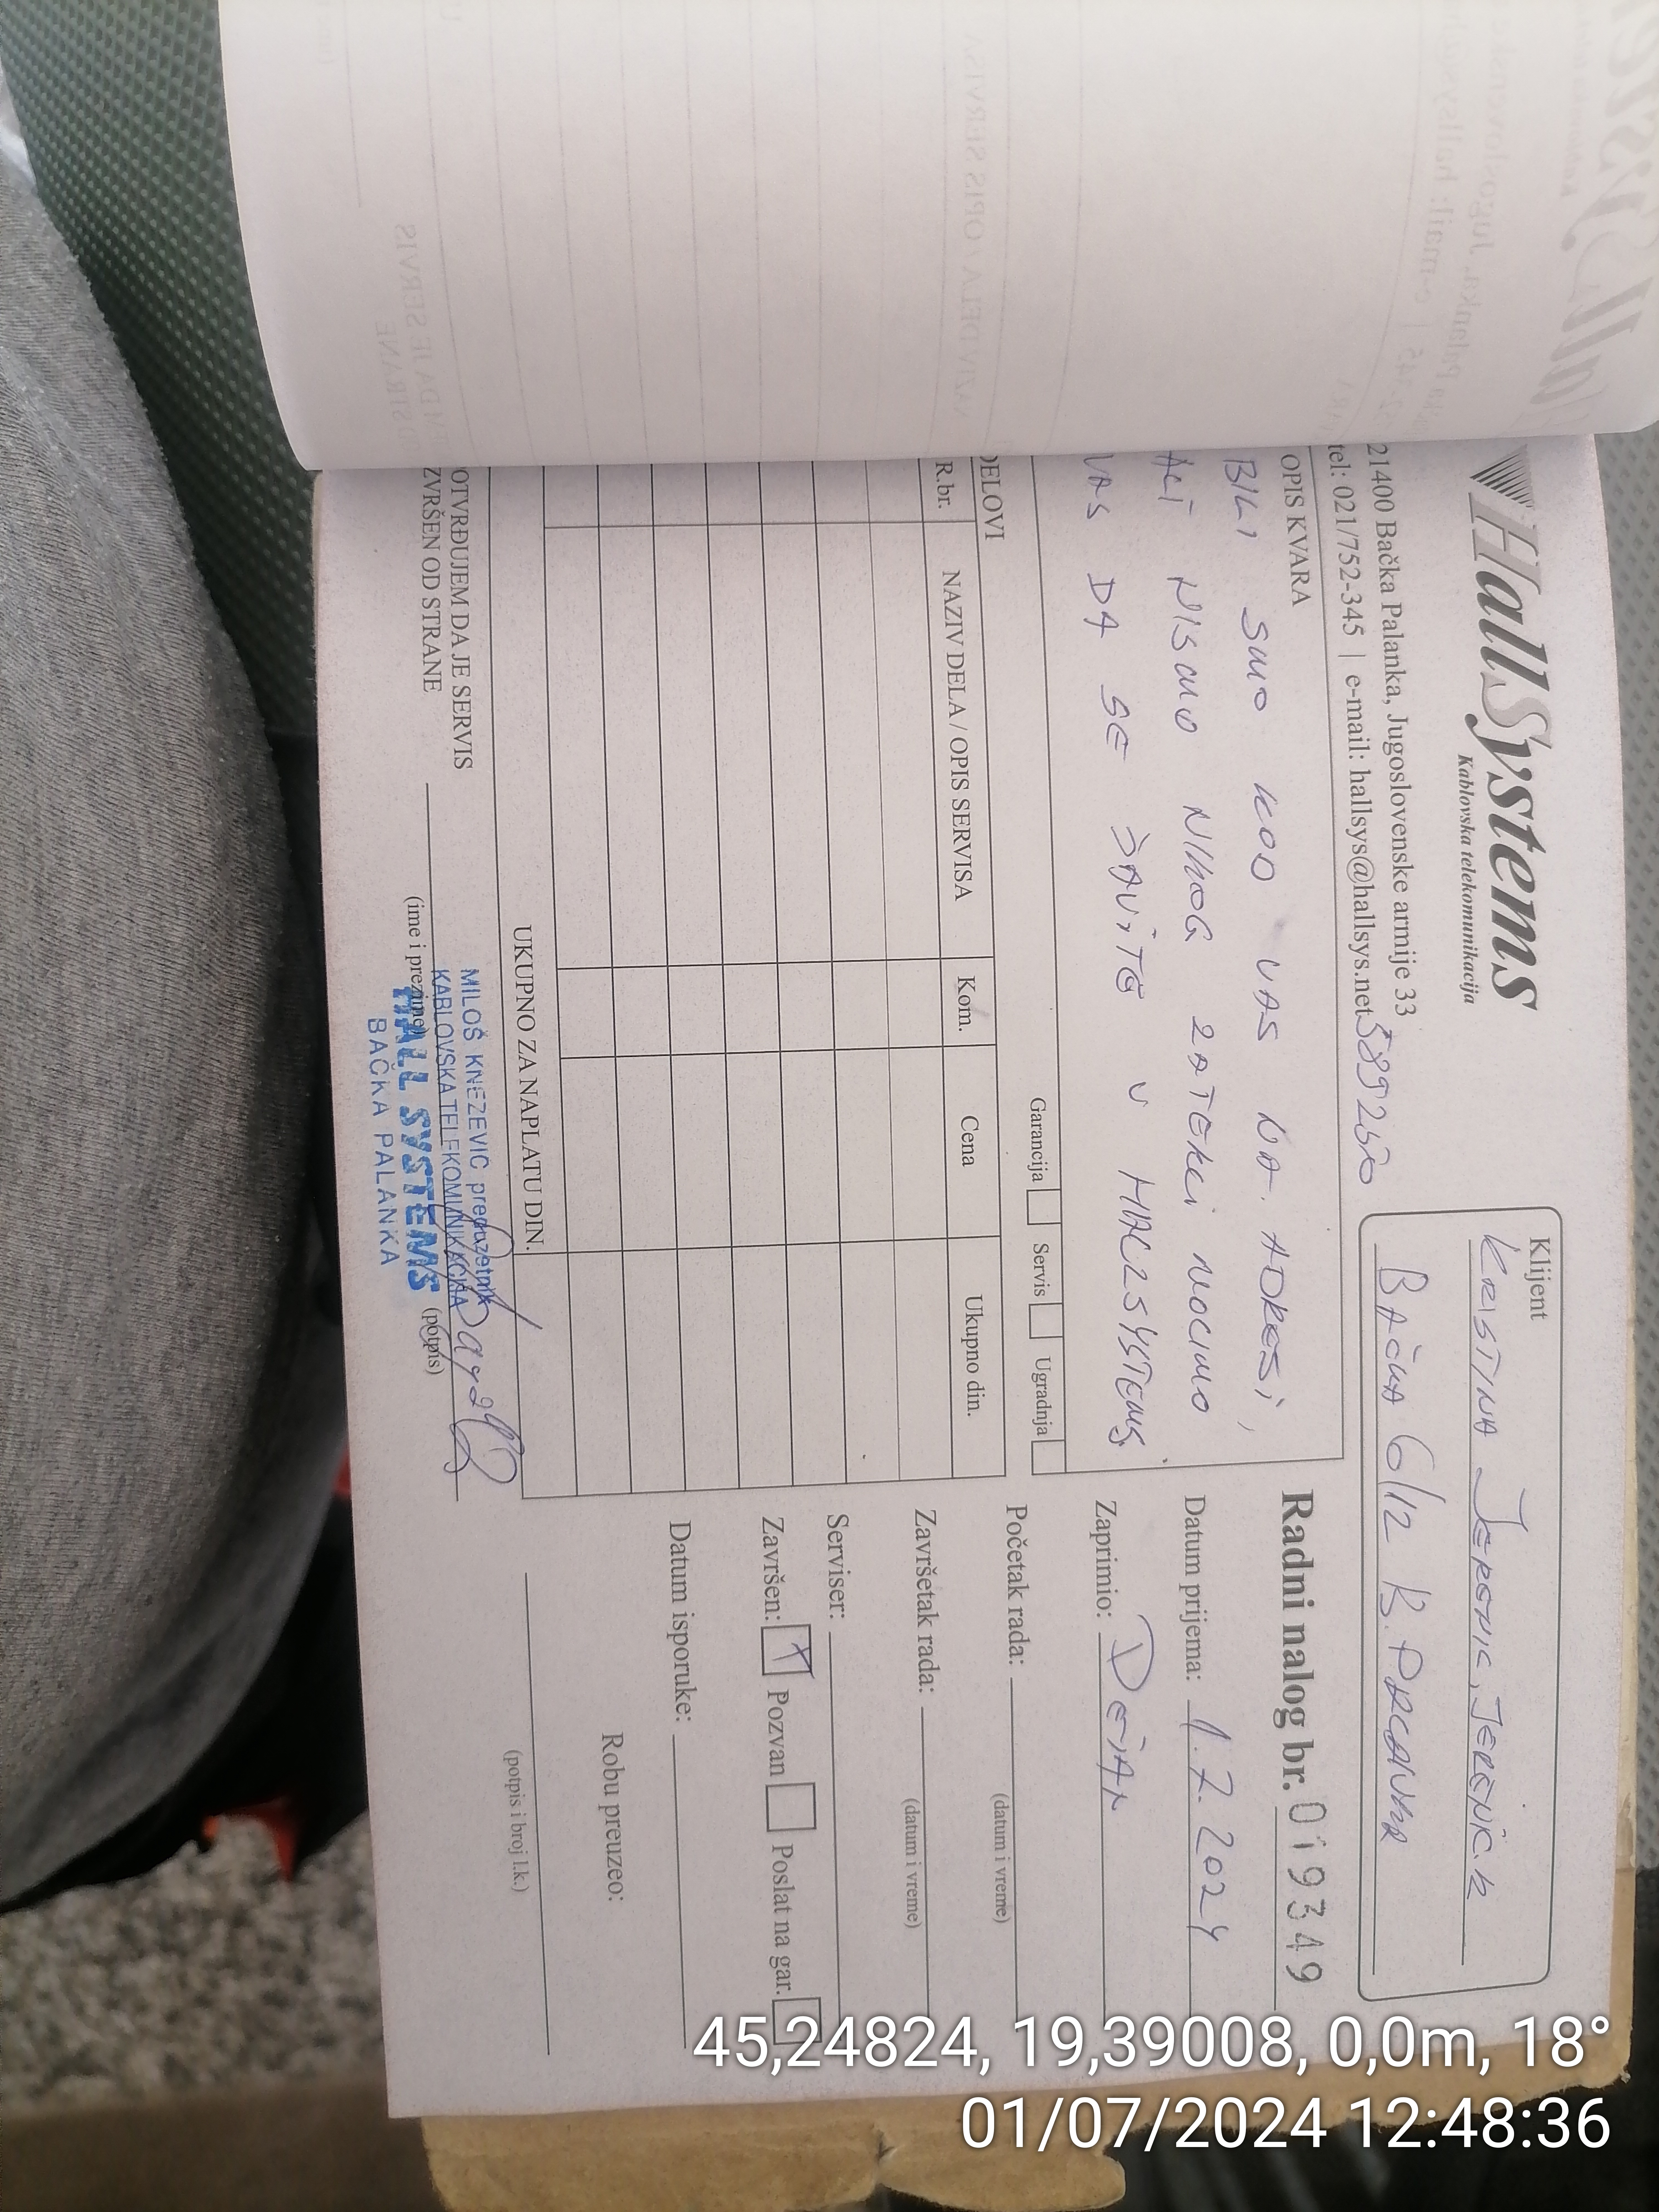 HallSystems
Kablovska telekomunikacija
21400 Bačka Palanka, Jugoslovenske armije 33
tel: 021/752-345 | e-mail: hallsys@hallsys.net
Klijent
KRISTINA JEREMIC
BAČKA 6/12 B. PALANKA
OPIS KVARA
BILI SMO KOD VAS NA ADRESI,
ALI NISMO NIKOG ZATEKLI MOLIMO
VAS DA SE JAVITE U HALLSYSTEMS.
Garancija Servis Ugradnja
DELOVI
R.br. NAZIV DELA / OPIS SERVISA Kom. Cena Ukupno din.
UKUPNO ZA NAPLATU DIN.
OTVRĐUJEM DA JE SERVIS
ZVRŠEN OD STRANE
(ime i prezime)
(potpis)
MILOŠ KNEZEVIC preduzetnik
KABLOVSKA TELEKOMUNIKACIJA
HALL SYSTEMS
BAČKA PALANKA
Radni nalog br. 019349
Datum prijema: 1.7.2024
Zaprimio: DEJAN
Početak rada:
(datum i vreme)
Završetak rada:
(datum i vreme)
Serviser:
Završen: X Pozvan Poslat na gar.
Datum isporuke:
Robu preuzeo:
(potpis i broj l.k.)
45,24824, 19,39008, 0,0m, 18°
01/07/2024 12:48:36